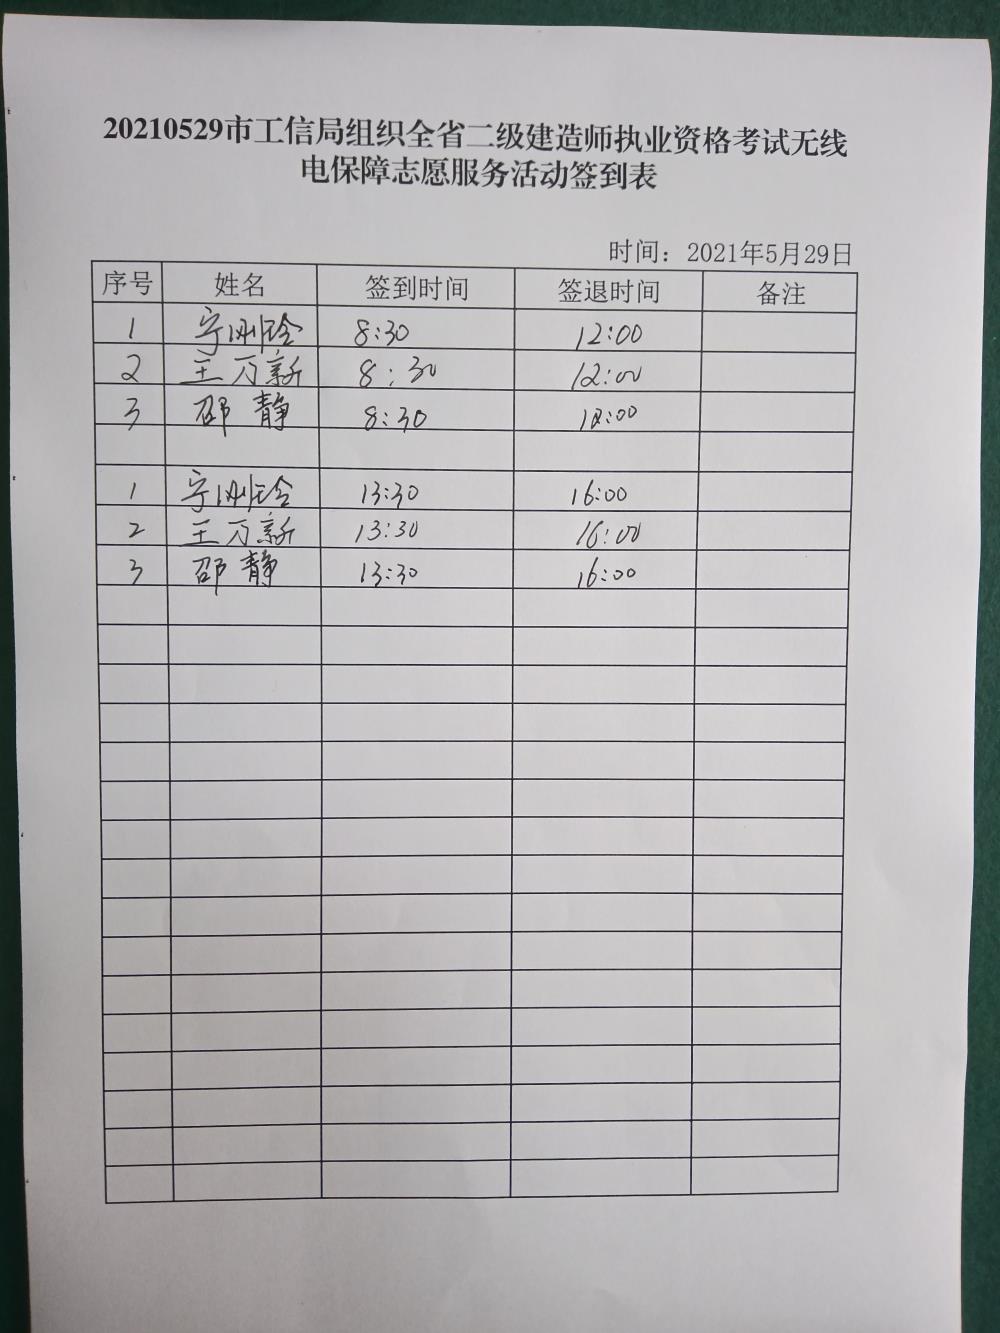 20210529市工信局组织全省二级建造师执业资格考试无线
电保障志愿服务活动签到表
时间：2021年5月29日
序号 姓名 签到时间 签退时间 备注
1 宁刚玲 8:30 12:00
2 王万新 8:30 12:00
3 邵静 8:30 12:00
1 宁刚玲 13:30 16:00
2 王万新 13:30 16:00
3 邵静 13:30 16:00